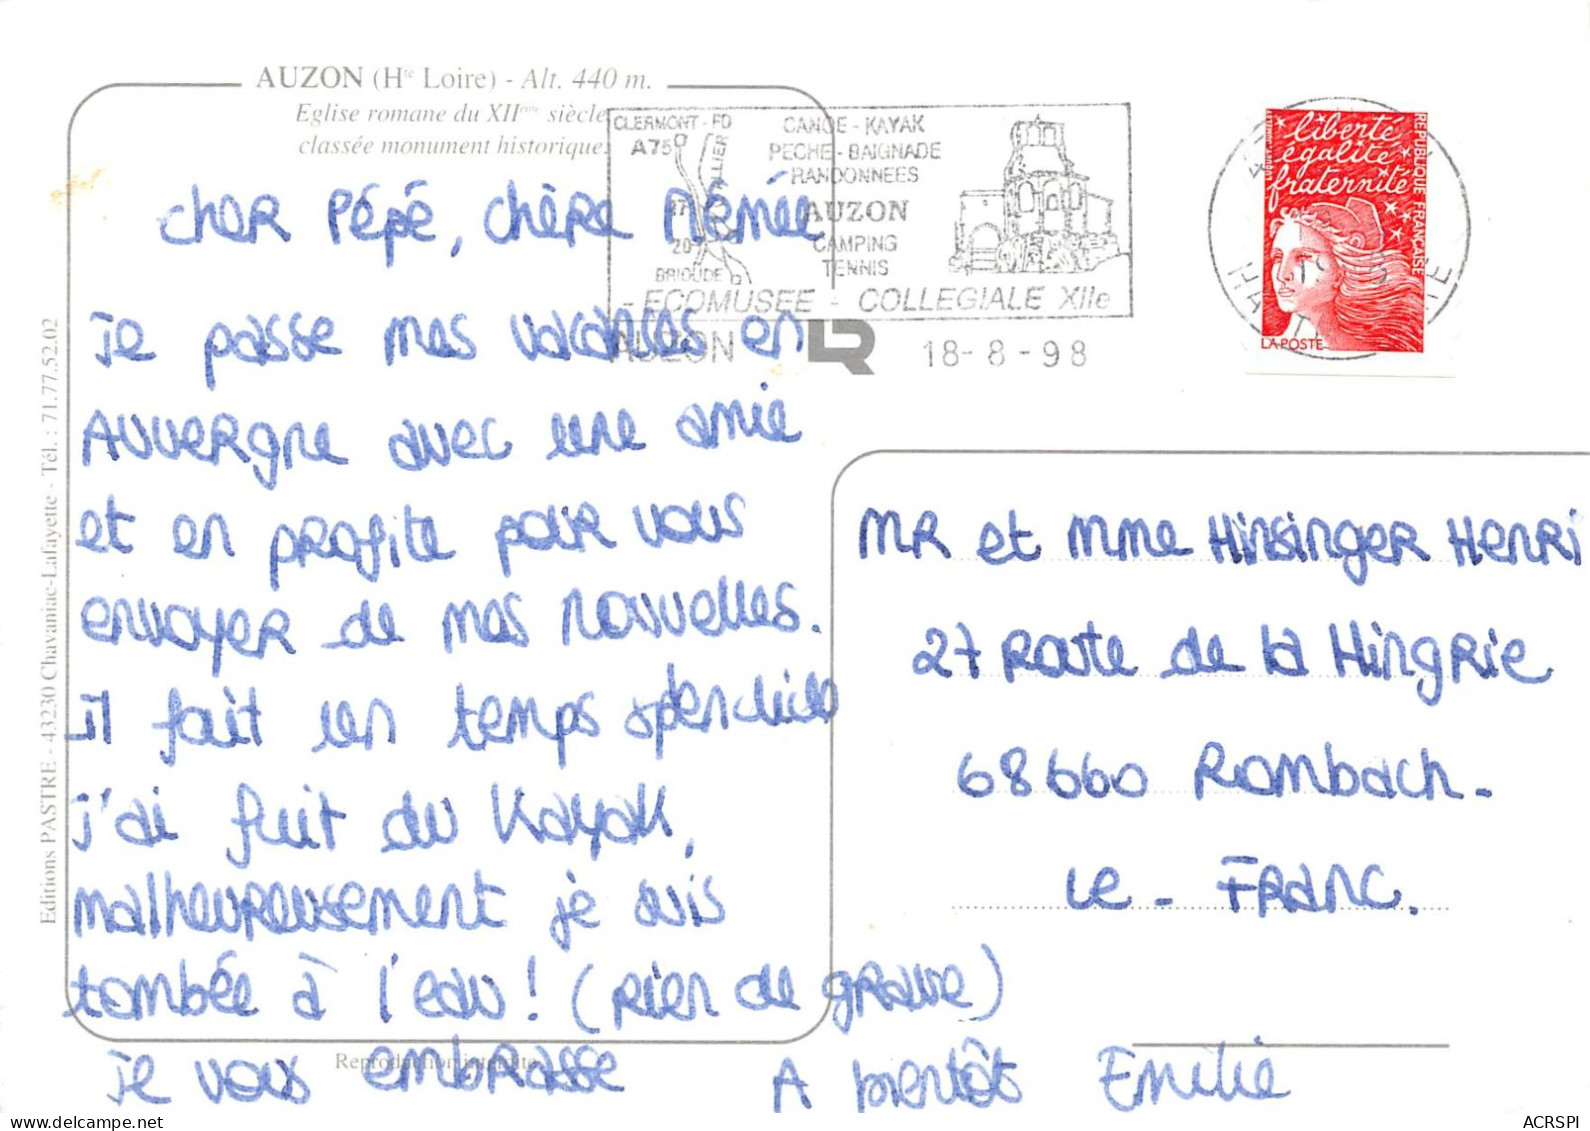 AUZON (Hte Loire) - Alt. 440 m.
Eglise romane du XIIème siècle
classée monument historique.
CLERMONT-FD
A75
ALLIER
20
BRIOUDE
CANOE - KAYAK
PECHE - BAIGNADE
RANDONNEES
AUZON
CAMPING
TENNIS
- ECOMUSEE - COLLEGIALE XIIe
AUZON
18-8-98
liberté
égalité
fraternité
REPUBLIQUE FRANÇAISE
LA POSTE
cher Pépé, chère Mémée
Je passe mes vacances en
Auvergne avec une amie
et en profite pour vous
envoyer de mes nouvelles.
il fait un temps splendide
J'ai fait du Kayak,
malheureusement je suis
tombée à l'eau ! (rien de grave)
Je vous embrasse A bientôt Emilie
MR et Mme Hinsinger Henri
27 Route de la Hingrie
68660 Rombach-
Le-Franc.
Editions PASTRE - 43230 Chavaniac-Lafayette - Tél. : 71.77.52.02
Reproduction interdite
delcampe.net
ACRSPI